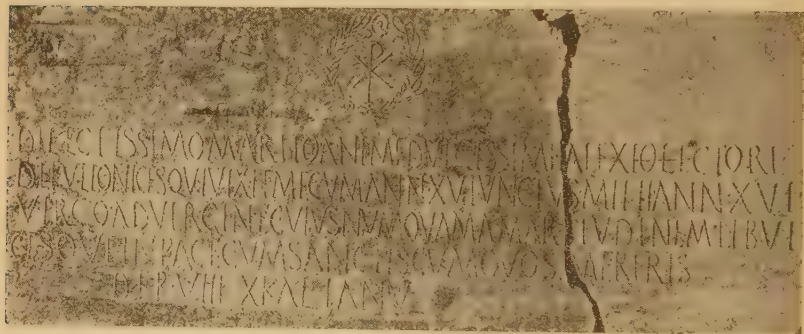 DILECTISSIMO MARITO ANIME DVLCISSIME ALEXIO LECTORI
DE FVLLONICES QVI VIXIT MECVM ANN XV IVNCTVS MIHI ANN XVI
VIRGO AD VIRGINE CVIVS NVMQVAM AMARITVDINEM HABVI
CESQVE IN PACE CVM SANCTIS CVM QVOS MERERIS
DEP VIII X KAL IANV